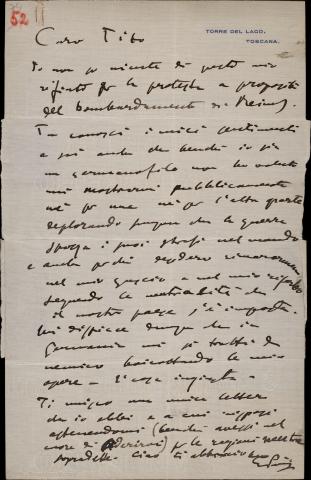 52
TORRE DEL LAGO,
TOSCANA.
Caro Tito
Io non so niente di questo mio
rifiuto per la protesta a proposito
del bombardamento di Reims.
Tu conosci i miei sentimenti
e sai anche che benchè io sia
un germanofilo non ho voluto
mai mostrarmi pubblicamente
nè per una nè per l'altra parte
deplorando sempre che la guerra
sparga i suoi strazi nel mondo
e anche perchè desidero rimanermene
nel mio guscio e nel mio riserbo
seguendo la neutralità che
il nostro paese s'è imposta.
Mi dispiace dunque che in
Germania mi si tratti da
nemico boicottando le mie
opere – È cosa ingiusta –
Ti unisco una mia lettera
che io ebbi e a cui risposi
astenendomi (benchè avessi nel
cuore di aderirvi) per le ragioni
suddette. Ciao ti abbraccio